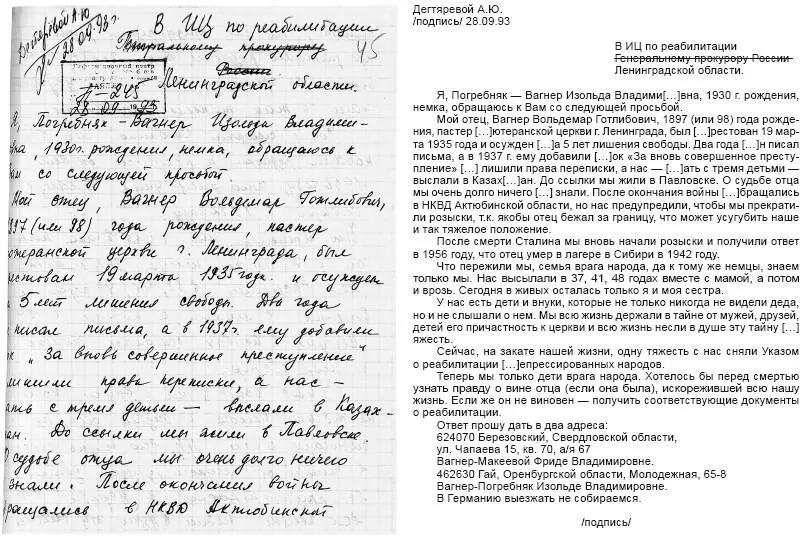 Дегтяревой А.Ю
28.09.93г.
В ИЦ по реабилитации
Генеральному прокурору
России
Ленинградской области.
45
245
28 09 1993
Я, Погребняк - Вагнер Изольда Владими-
вна, 1930г. рождения, немка, обращаюсь к
со следующей просьбой.
Мой отец, Вагнер Вольдемар Готлибович,
(или 98) года рождения, пастер
ютеранской церкви г. Ленинграда, был
рестован 19 марта 1935 года и осужден
5 лет лишения свободы. Два года
писал письма, а в 1937г. ему добавили
к „За вновь совершенное преступление"
лишили права переписки, а нас -
ать с тремя детьми - выслали в Казах-
ан. До ссылки мы жили в Павловске.
О судьбе отца мы очень долго ничего
знали. После окончания войны
бращались в НКВД Актюбинской
Дегтяревой А.Ю.
/подпись/ 28.09.93
В ИЦ по реабилитации
Генеральному прокурору России
Ленинградской области.
Я, Погребняк — Вагнер Изольда Владими[…]вна, 1930 г. рождения,
немка, обращаюсь к Вам со следующей просьбой.
Мой отец, Вагнер Вольдемар Готлибович, 1897 (или 98) года рожде-
ния, пастер […]ютеранской церкви г. Ленинграда, был […]рестован 19 мар-
та 1935 года и осужден […]а 5 лет лишения свободы. Два года […]н писал
письма, а в 1937 г. ему добавили […]ок «За вновь совершенное престу-
пление» […] лишили права переписки, а нас — […]ать с тремя детьми —
выслали в Казах[…]ан. До ссылки мы жили в Павловске. О судьбе отца
мы очень долго ничего […] знали. После окончания войны […]бращались
в НКВД Актюбинской области, но нас предупредили, чтобы мы прекрати-
ли розыски, т.к. якобы отец бежал за границу, что может усугубить наше
и так тяжелое положение.
После смерти Сталина мы вновь начали розыски и получили ответ
в 1956 году, что отец умер в лагере в Сибири в 1942 году.
Что пережили мы, семья врага народа, да к тому же немцы, знаем
только мы. Нас высылали в 37, 41, 48 годах вместе с мамой, а потом
и врозь. Сегодня в живых осталась только я и моя сестра.
У нас есть дети и внуки, которые не только никогда не видели деда,
но и не слышали о нем. Мы всю жизнь держали в тайне от мужей, друзей,
детей его причастность к церкви и всю жизнь несли в душе эту тайну […]
яжесть.
Сейчас, на закате нашей жизни, одну тяжесть с нас сняли Указом
о реабилитации […]епрессированных народов.
Теперь мы только дети врага народа. Хотелось бы перед смертью
узнать правду о вине отца (если она была), искорежившей всю нашу
жизнь. Если же он не виновен — получить соответствующие документы
о реабилитации.
Ответ прошу дать в два адреса:
624070 Березовский, Свердловской области,
ул. Чапаева 15, кв. 70, а/я 67
Вагнер-Макеевой Фриде Владимировне.
462630 Гай, Оренбургской области, Молодежная, 65-8
Вагнер-Погребняк Изольде Владимировне.
В Германию выезжать не собираемся.
/подпись/